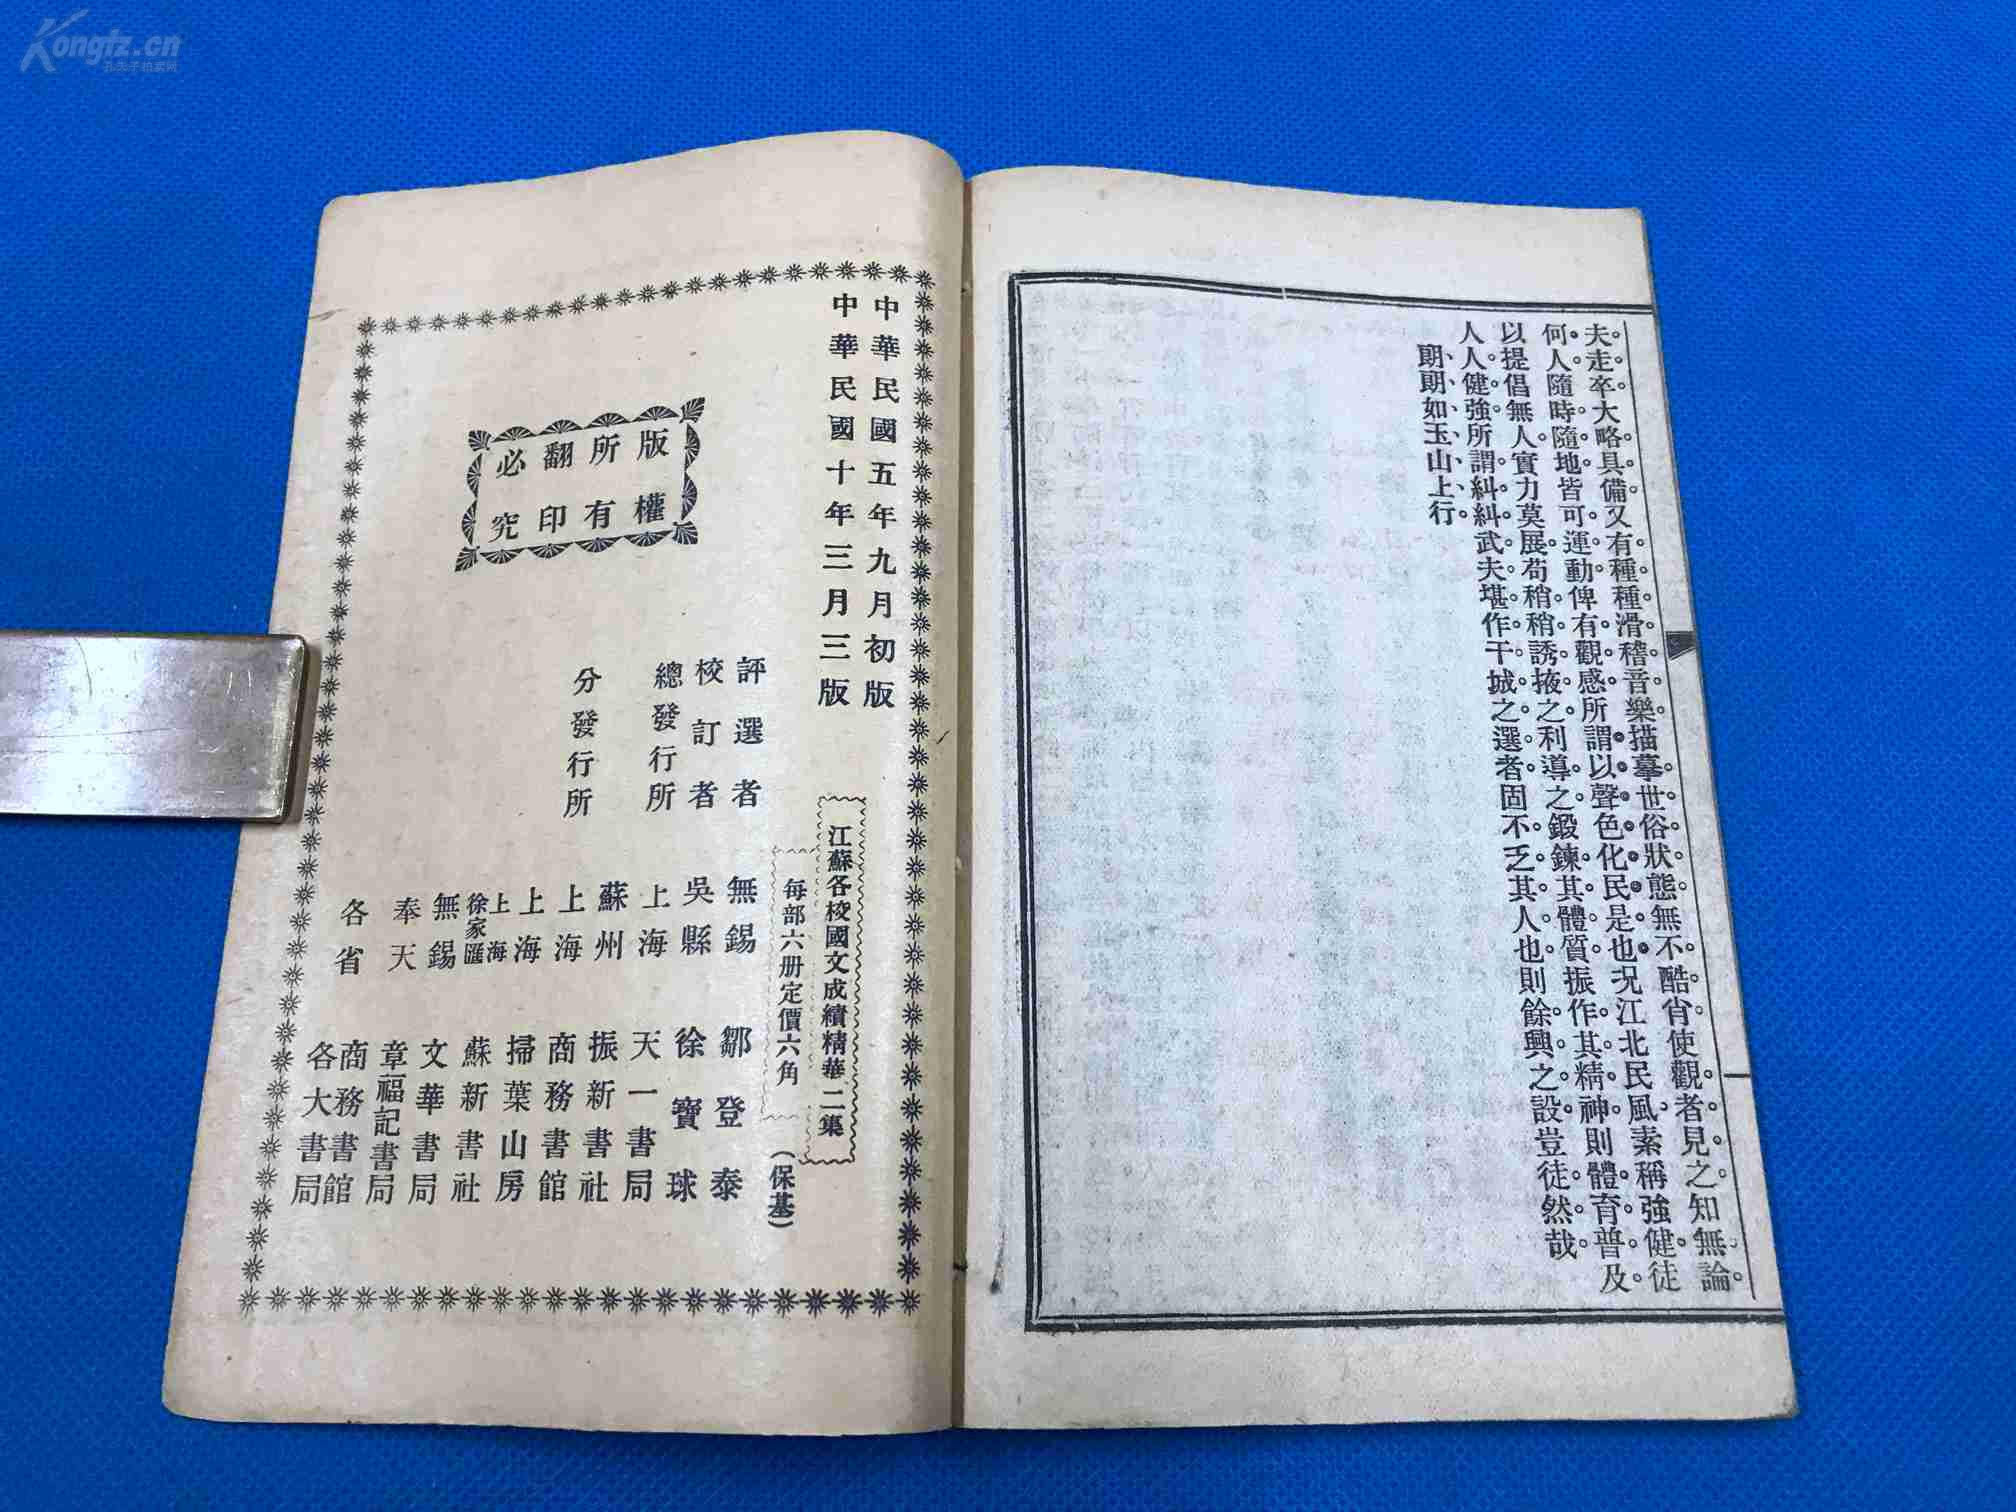 Kongfz.cn
孔夫子拍卖网
夫走卒大略具備又有種種滑稽音樂描摹世俗狀態無不酷肖使觀者見之知無論
何人隨時隨地皆可運動俾有觀感所謂以聲色化民是也况江北民風素稱強健徒
以提倡無人實力莫展苟稍稍誘掖之利導之鍛鍊其體質振作其精神則體育普及
人人健強所謂糾糾武夫堪作干城之選者固不乏其人也則餘興之設豈徒然哉
朗朗如玉山上行
中華民國五年九月初版
中華民國十年三月三版
江蘇各校國文成績精華二集
每部六册定價六角
(保基)
評選者 無錫 鄒登泰
校訂者 吳縣 徐寶球
總發行所 上海 天一書局
蘇州 振新書社
分發行所 上海 商務書館
上海 掃葉山房
上海徐家匯 蘇新書社
無錫 文華書局
章福記書局
奉天 商務書館
各省 各大書局
版權
所有
翻印
必究